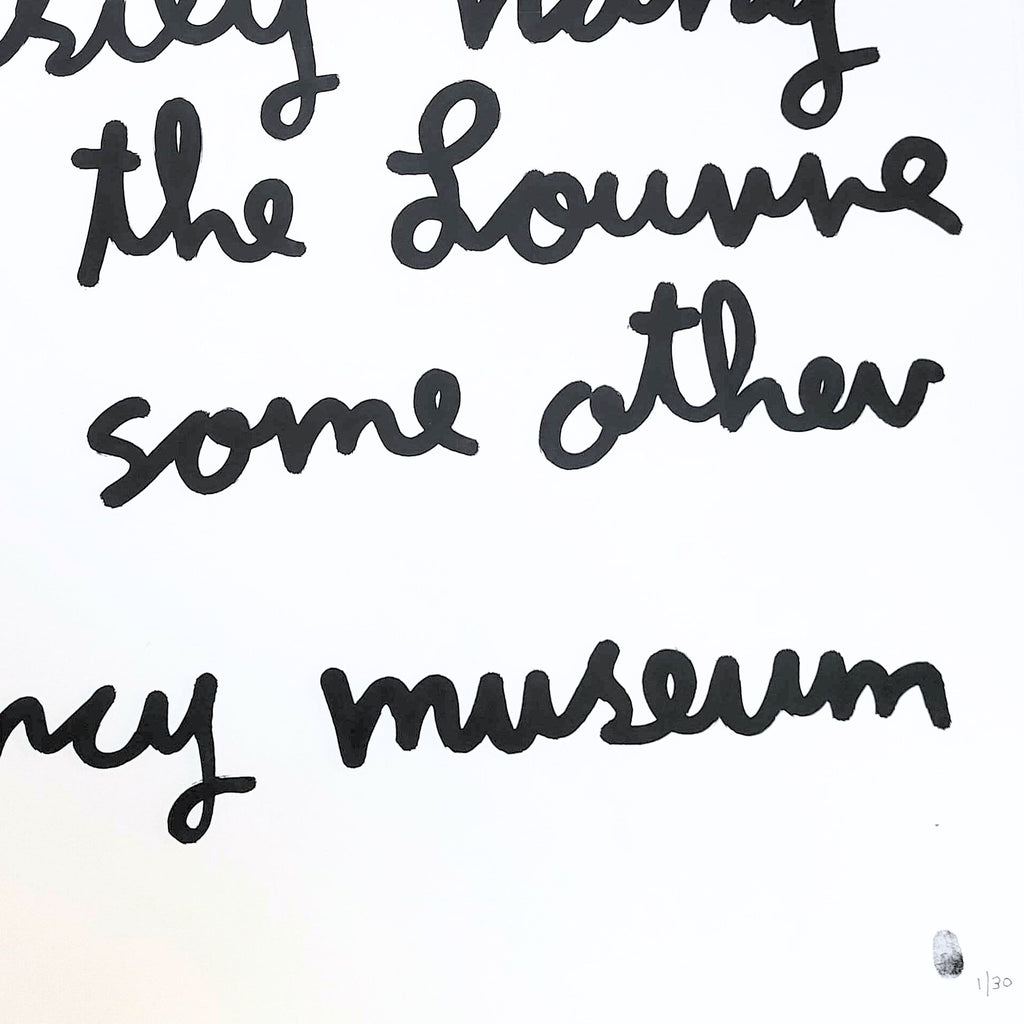 sily hang
the Louvre
some other
ncy museum
1/30